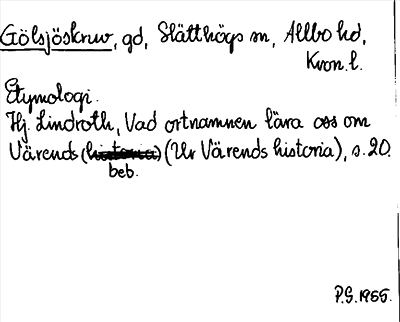 Gölsjöskruv, gd, Slätthögs sn, Allbo hd,
Kron. l.
Etymologi.
Hj. Lindroth, Vad ortnamnen lära oss om
Värends (historia) (Ur Värends historia), s. 20.
beb.
P.G. 1955.